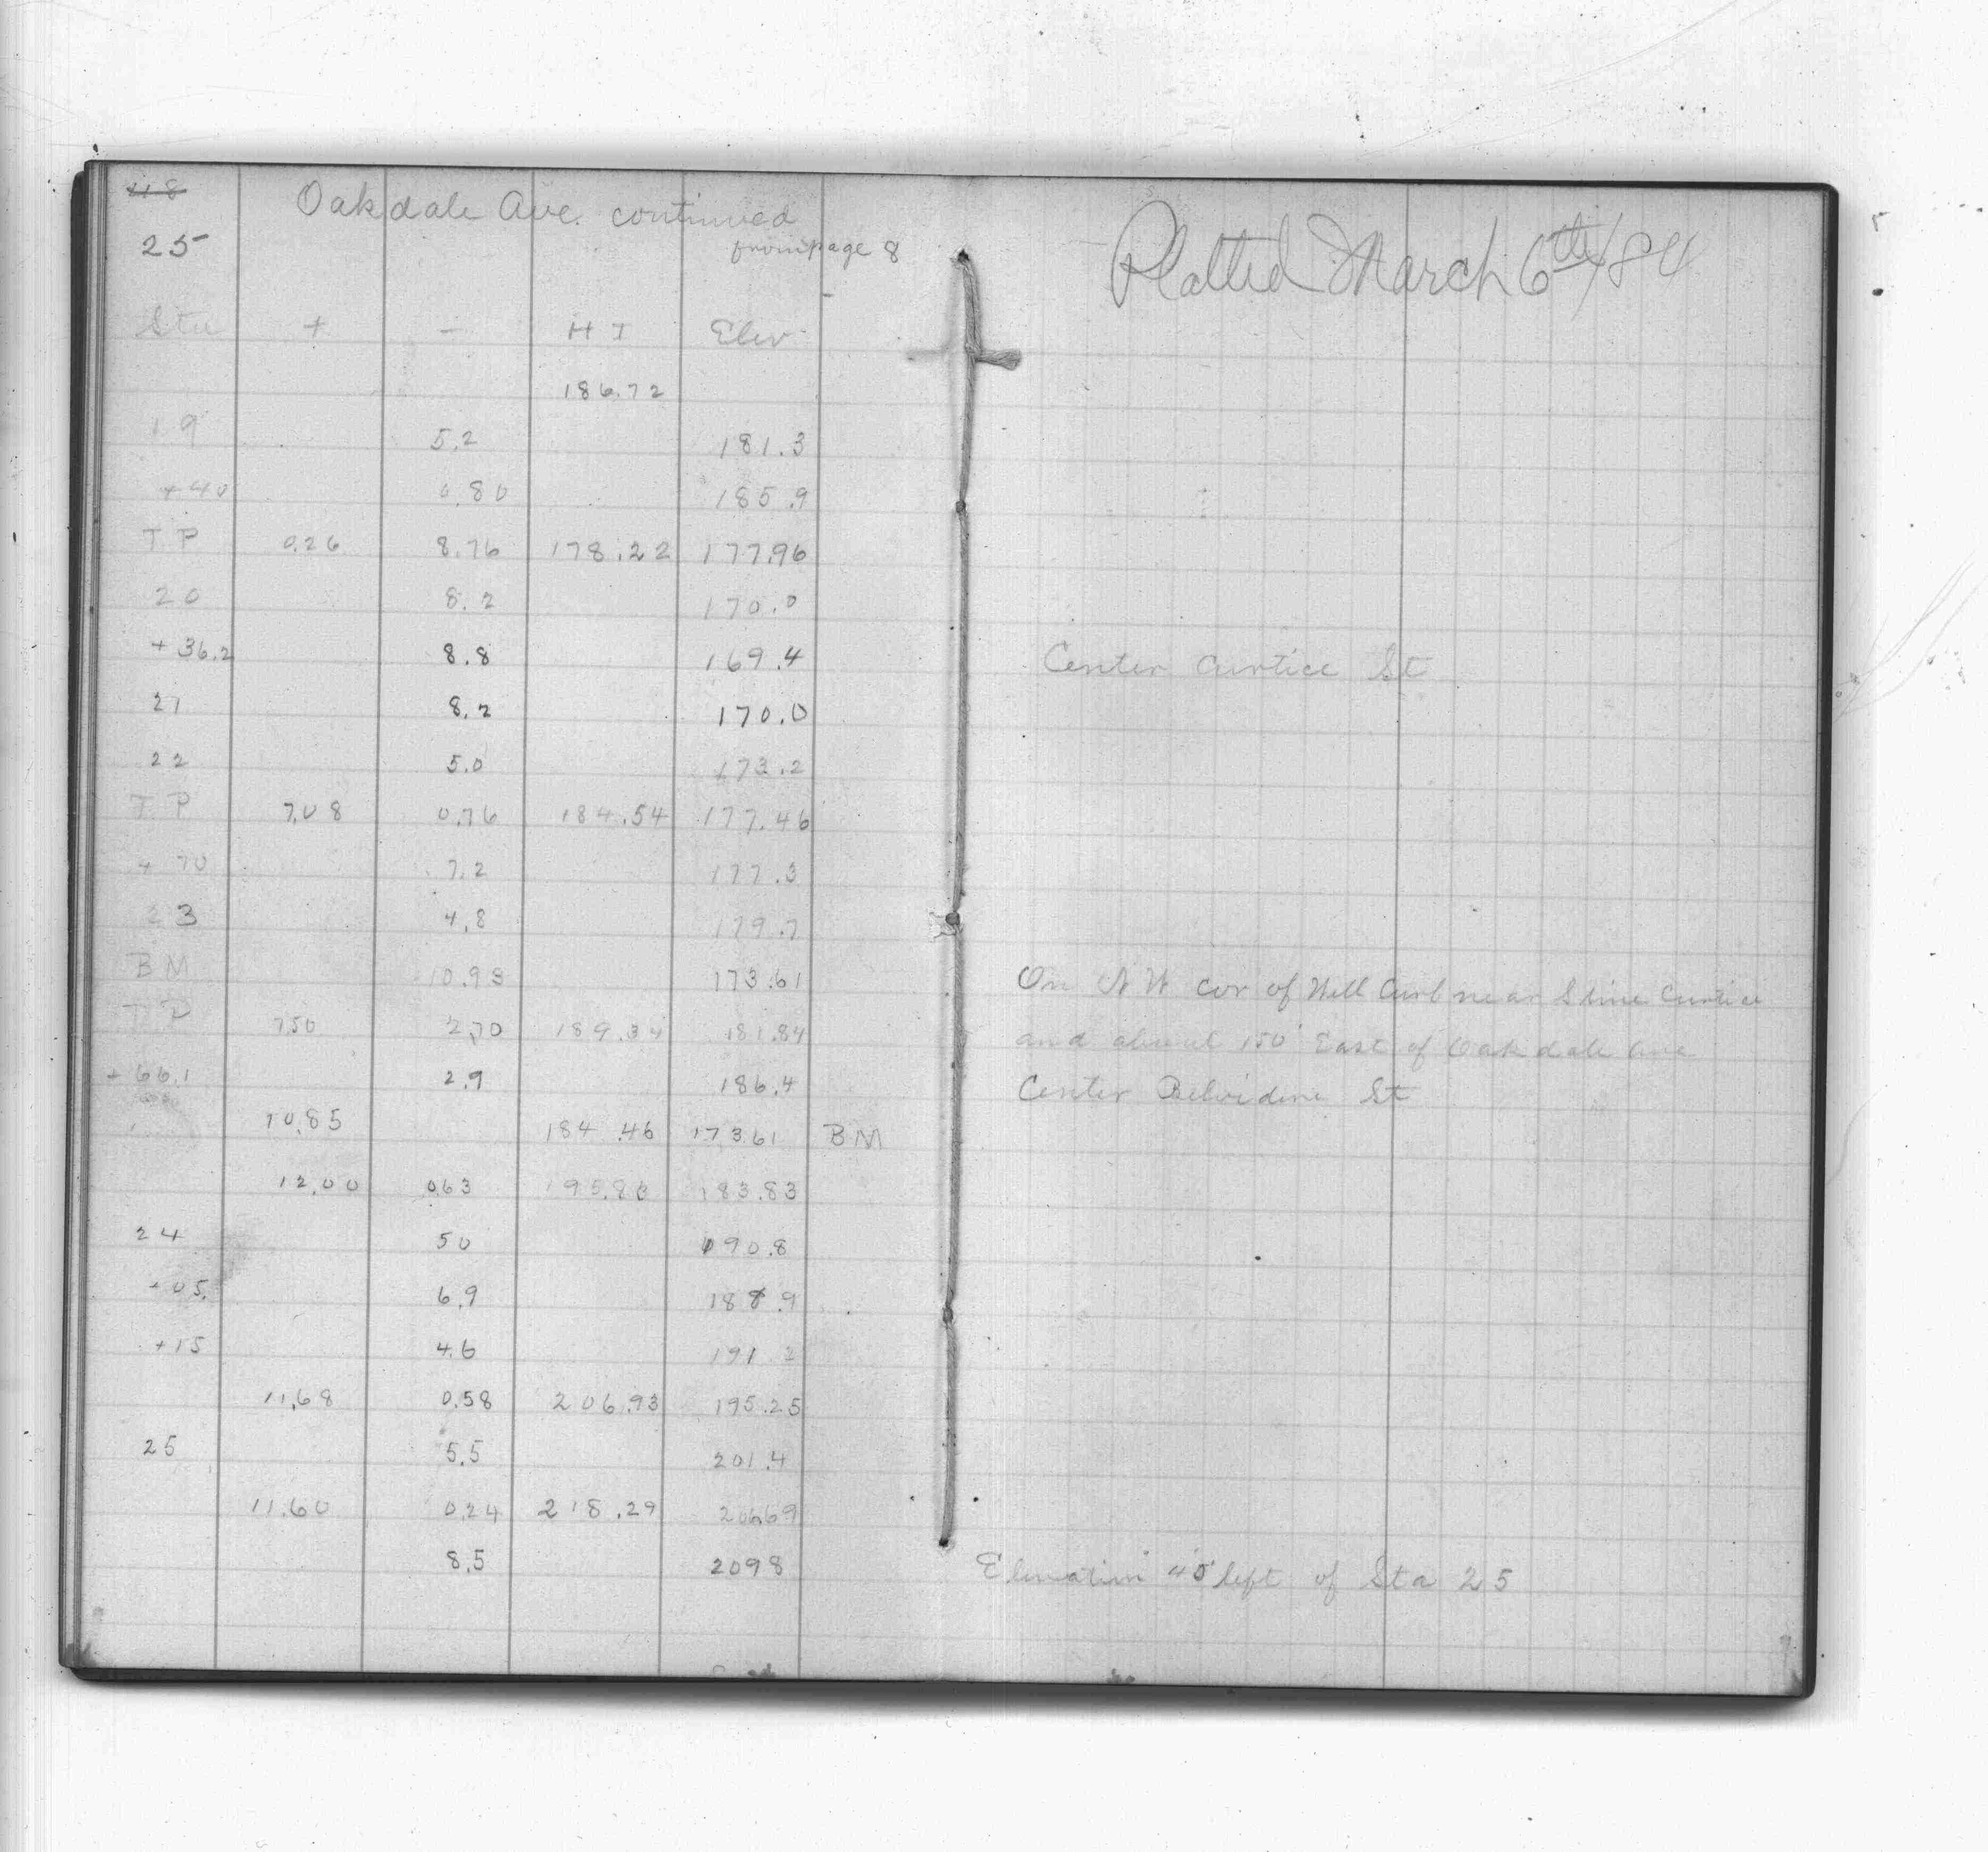 48
25
Oakdale Ave. continued
from page 8
Sta + - H I Elev
186.72
19 5.2 181.3
+40 0.80 185.9
T P 0.26 8.76 178.22 177.96
20 8.2 170.0
+36.2 8.8 169.4
21 8.2 170.0
22 5.0 173.2
T P 7.08 0.76 184.54 177.46
+70 7.2 177.3
23 4.8 179.7
B M 10.93 173.61
T P 7.50 2.70 189.34 181.84
+66.1 2.9 186.4
10.85 184.46 173.61 B M
12.00 0.63 195.83 183.83
24 5 0 190.8
+05. 6.9 188.9
+15 4.6 191.2
11.68 0.58 206.93 195.25
25 5.5 201.4
11.60 0.24 218.29 206.69
8.5 209 8
Platted March 6th/84
Center Curtice St
On N W cor of Well Curb near S line Curtice
and about 150' East of Oakdale Ave
Center Belvidere St
Elevation left of Sta 25